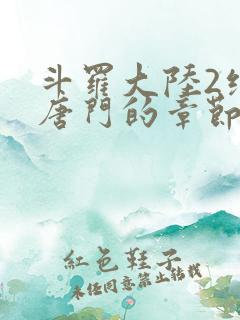 斗羅大陸2
唐門的章節
紅色鞋子
未經同意禁止轉載